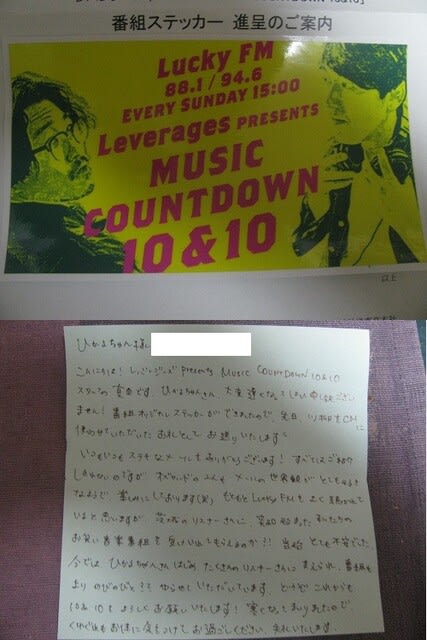 番組ステッカー 進呈のご案内
Lucky FM
88.1 / 94.6
EVERY SUNDAY 15:00
Leverages PRESENTS
MUSIC
COUNTDOWN
10 & 10
以上
ひかるちゃん様
こんにちは! レバレジーズ presents MUSIC COUNTDOWN 10&10
スタッフの です。ひかるちゃんさん、大変遅くなってしまい申し訳ござい
ません! 番組オリジナルステッカーができましたので、先日
使わせていただいたお礼として お送りいたします。
いつもいつもステキなメールをありがとうございます! すべてはご紹介
しきれないのですが、 メールの世界観がとても
なようで、楽しみにしております(笑) もともとLucky FMをよく聴かれて
いると思いますが、茨城のリスナーさんに、 始まった私たちの
お笑い音楽番組を受けいれてもらえるか!! 当初 とても不安でした。
今では、ひかるちゃんさんはじめ、たくさんのリスナーさんに支えられ、番組も
よりのびのびと させていただいています。どうぞこれからも
10&10をよろしくお願いいたします! 寒くなってまいりましたので、
くれぐれもお体に気をつけてお過ごしください。失礼いたします。